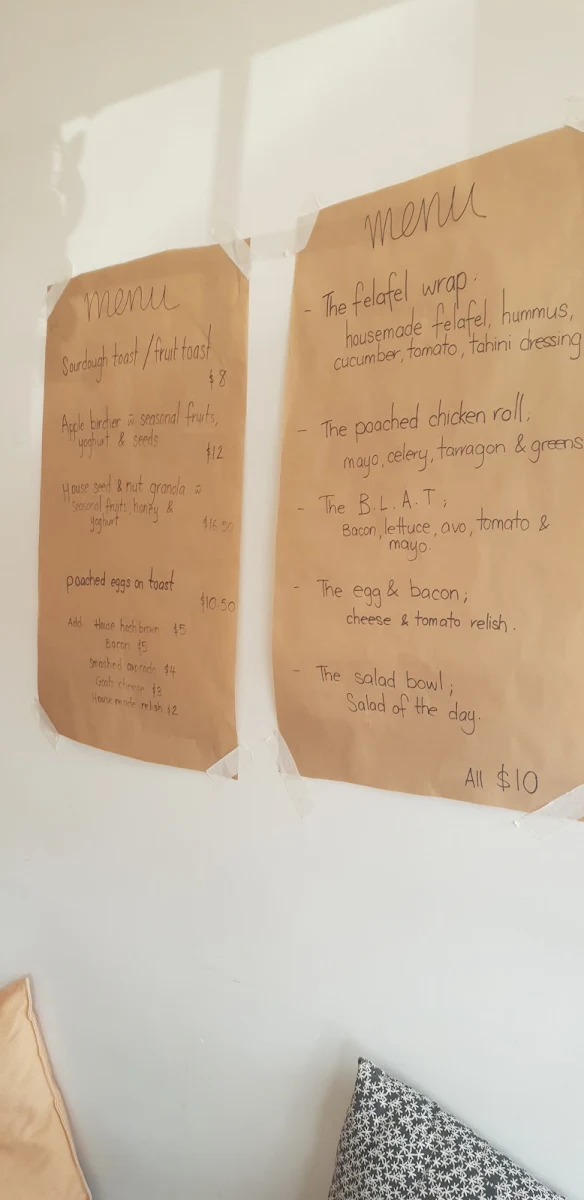 menu
Sourdough toast / fruit toast
$8
Apple bircher w seasonal fruits,
yoghurt & seeds
$12
House seed & nut granola w
seasonal fruits, honey &
yoghurt
$16.50
poached eggs on toast
$10.50
Add: House hash brown $5
Bacon $5
Smashed avocado $4
Goats cheese $3
House made relish $2
menu
- The felafel wrap.
housemade felafel, hummus,
cucumber, tomato, tahini dressing
- The poached chicken roll;
mayo, celery, tarragon & greens
- The B.L.A.T;
Bacon, lettuce, avo, tomato &
mayo.
- The egg & bacon;
cheese & tomato relish.
- The salad bowl;
Salad of the day.
All $10